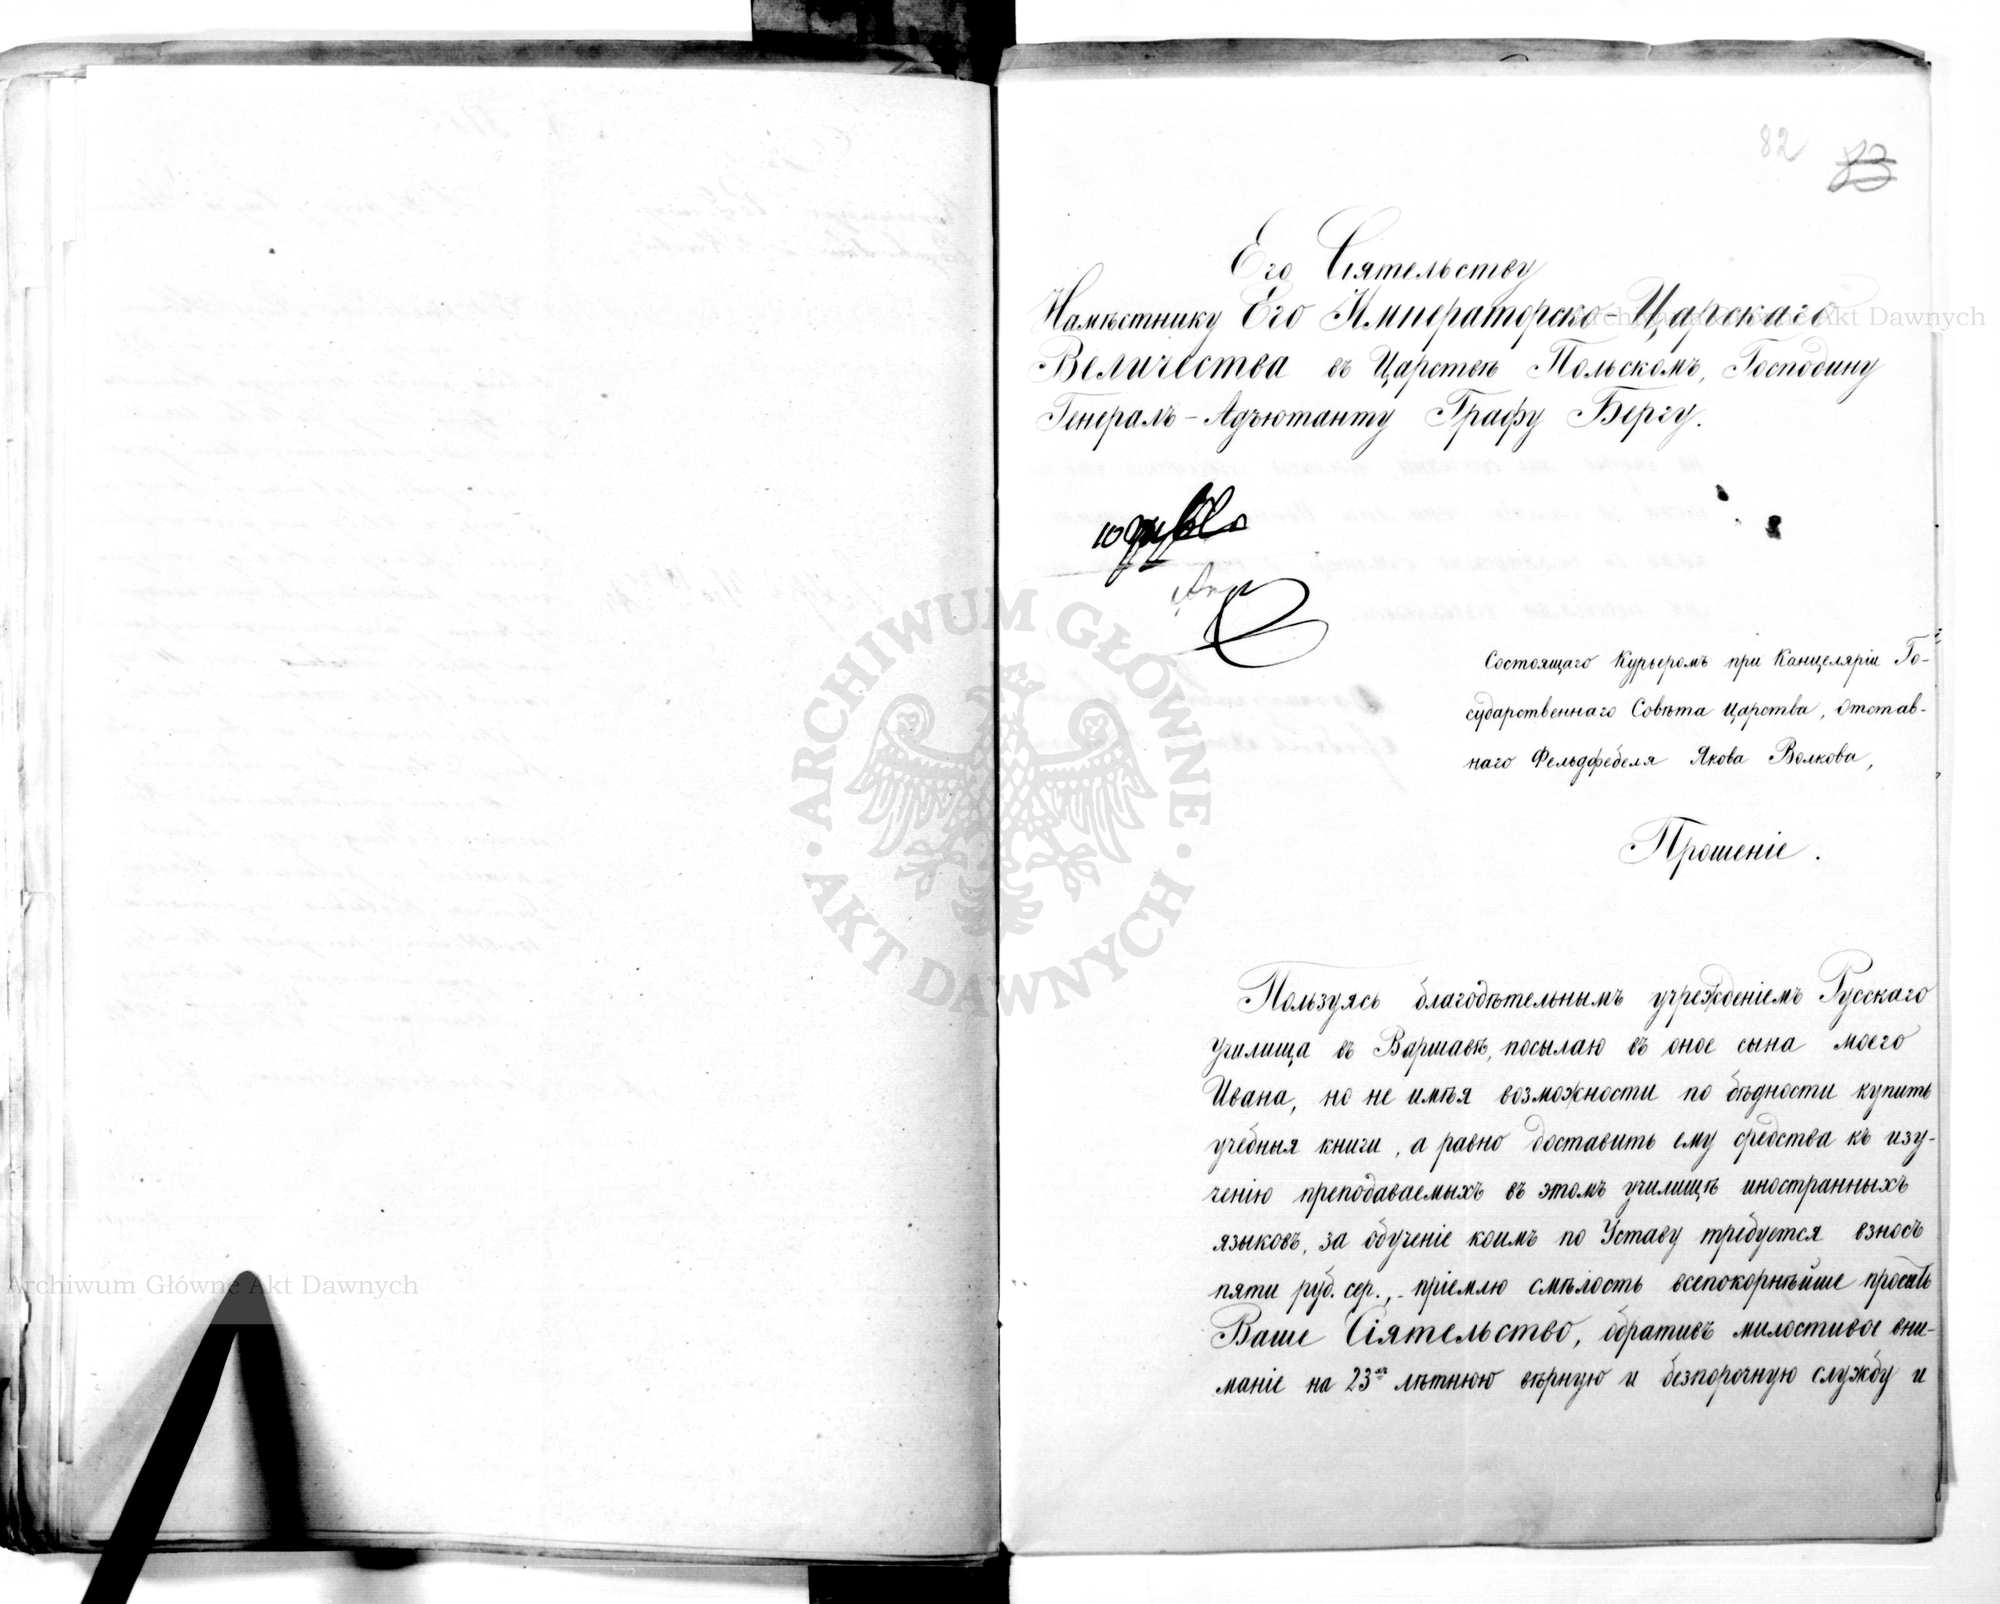 82
83
Его Сіятельству
Намѣстнику Его Императорско-Царскаго
Величества въ Царствѣ Польскомъ, Господину
Генералъ-Адъютанту Графу Бергу.
Состоящаго Курьеромъ при Канцеляріи Го-
сударственнаго Совѣта Царства, отстав-
наго Фельдфебеля Якова Волкова,
Прошеніе.
Пользуясь благодѣтельнымъ учрежденіемъ Русскаго
училища въ Варшавѣ, посылаю въ оное сына моего
Ивана, но не имѣя возможности по бѣдности купить
учебныя книги, а равно доставить ему средства къ изу-
ченію преподаваемыхъ въ этомъ училищѣ иностранныхъ
языковъ, за обученіе коимъ по Уставу требуется взносъ
пяти руб. сер., - пріемлю смѣлость всепокорнѣйше просить
Ваше Сіятельство, обративъ милостивое вни-
маніе на 23хъ лѣтнюю вѣрную и безпорочную службу и
Archiwum Główne Akt Dawnych
Archiwum Główne Akt Dawnych
ARCHIWUM GŁÓWNE · AKT DAWNYCH ·